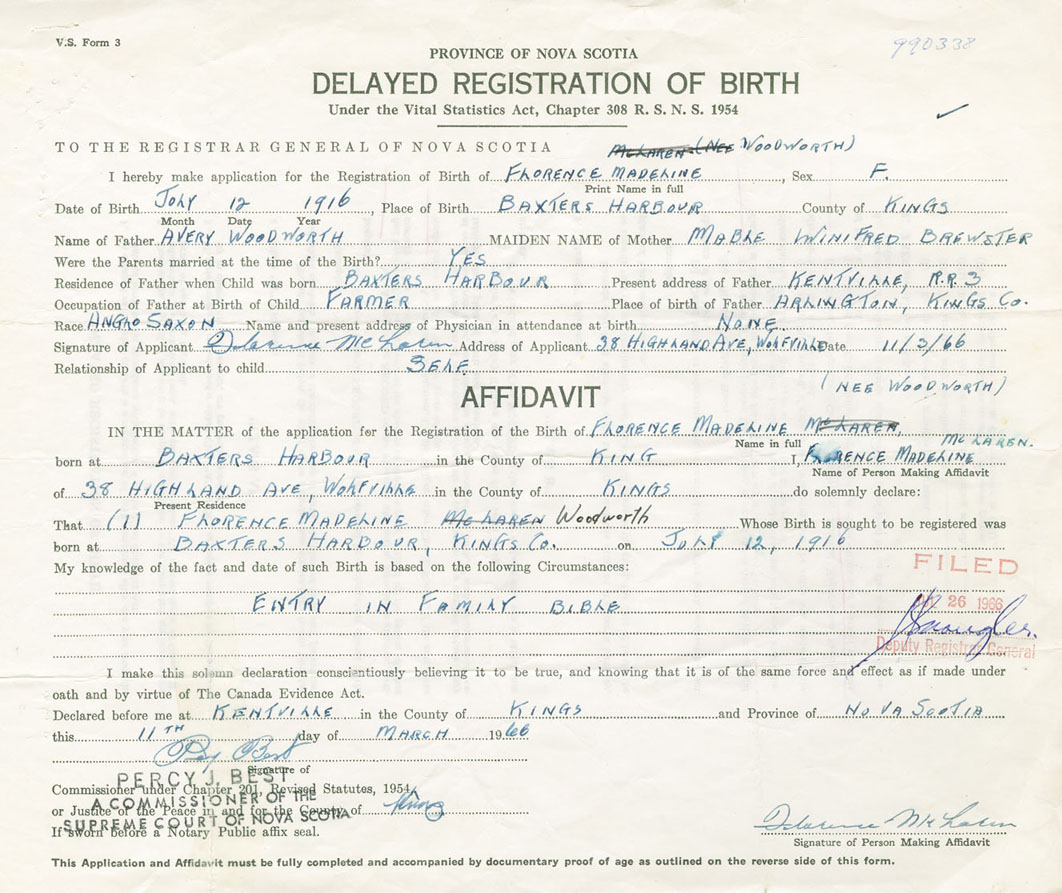 V.S. Form 3
990338
PROVINCE OF NOVA SCOTIA
DELAYED REGISTRATION OF BIRTH
Under the Vital Statistics Act, Chapter 308 R. S. N. S. 1954
TO THE REGISTRAR GENERAL OF NOVA SCOTIA McLAREN (NEE WOODWORTH)
I hereby make application for the Registration of Birth of FLORENCE MADELINE, Sex F.
Print Name in full
Date of Birth JULY 12 1916, Place of Birth BAXTERS HARBOUR County of KINGS
Month Date Year
Name of Father AVERY WOODWORTH MAIDEN NAME of Mother MABLE WINIFRED BREWSTER
Were the Parents married at the time of the Birth? YES
Residence of Father when Child was born BAXTERS HARBOUR Present address of Father KENTVILLE, R.R.3
Occupation of Father at Birth of Child FARMER Place of birth of Father ARLINGTON, KINGS CO.
Race ANGLO SAXON Name and present address of Physician in attendance at birth NONE
Signature of Applicant Florence McLaren Address of Applicant 38 HIGHLAND AVE, WOLFVILLE Date 11/3/66
Relationship of Applicant to child SELF
AFFIDAVIT
(NEE WOODWORTH)
IN THE MATTER of the application for the Registration of the Birth of FLORENCE MADELINE McLAREN,
Name in full McLAREN.
born at BAXTERS HARBOUR in the County of KING I, FLORENCE MADELINE
Name of Person Making Affidavit
of 38 HIGHLAND AVE, WOLFVILLE in the County of KINGS do solemnly declare:
Present Residence
That (1) FLORENCE MADELINE McLAREN Woodworth Whose Birth is sought to be registered was
born at BAXTERS HARBOUR, KINGS CO. on JULY 12, 1916
My knowledge of the fact and date of such Birth is based on the following Circumstances:
FILED
ENTRY IN FAMILY BIBLE
26 1966
Deputy Registrar General
I make this solemn declaration conscientiously believing it to be true, and knowing that it is of the same force and effect as if made under
oath and by virtue of The Canada Evidence Act.
Declared before me at KENTVILLE in the County of KINGS and Province of NOVA SCOTIA
this 11TH day of MARCH 1966
Percy Best
Signature of
PERCY J. BEST
Commissioner under Chapter 201, Revised Statutes, 1954,
A COMMISSIONER OF THE
or Justice of the Peace in and for the County of Kings
SUPREME COURT OF NOVA SCOTIA
If sworn before a Notary Public affix seal.
Florence McLaren
Signature of Person Making Affidavit
This Application and Affidavit must be fully completed and accompanied by documentary proof of age as outlined on the reverse side of this form.